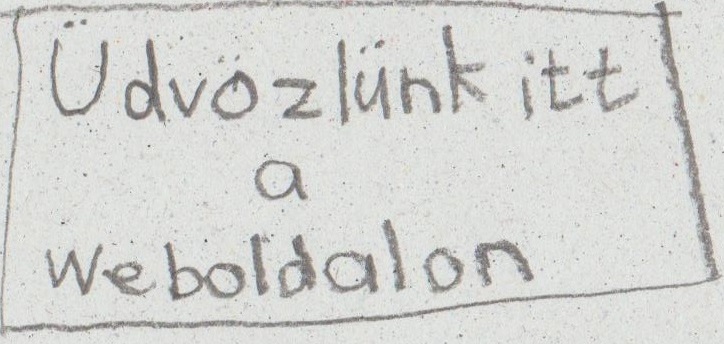 Üdvözlünk itt
a
Weboldalon